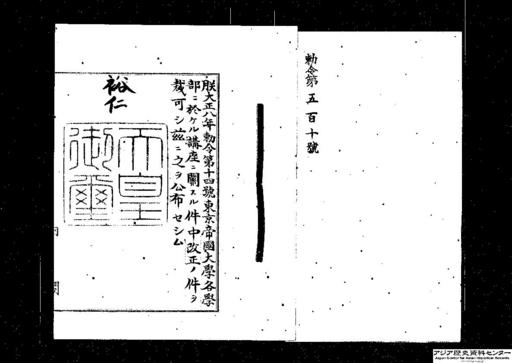 勅令第五百十號
朕大正八年勅令第十四號東京帝國大學各學
部ニ於ケル講座ニ關スル件中改正ノ件ヲ
裁可シ茲ニ之ヲ公布セシム
裕仁
天皇
御璽
アジア歴史資料センター
Japan Center for Asian Historical Records